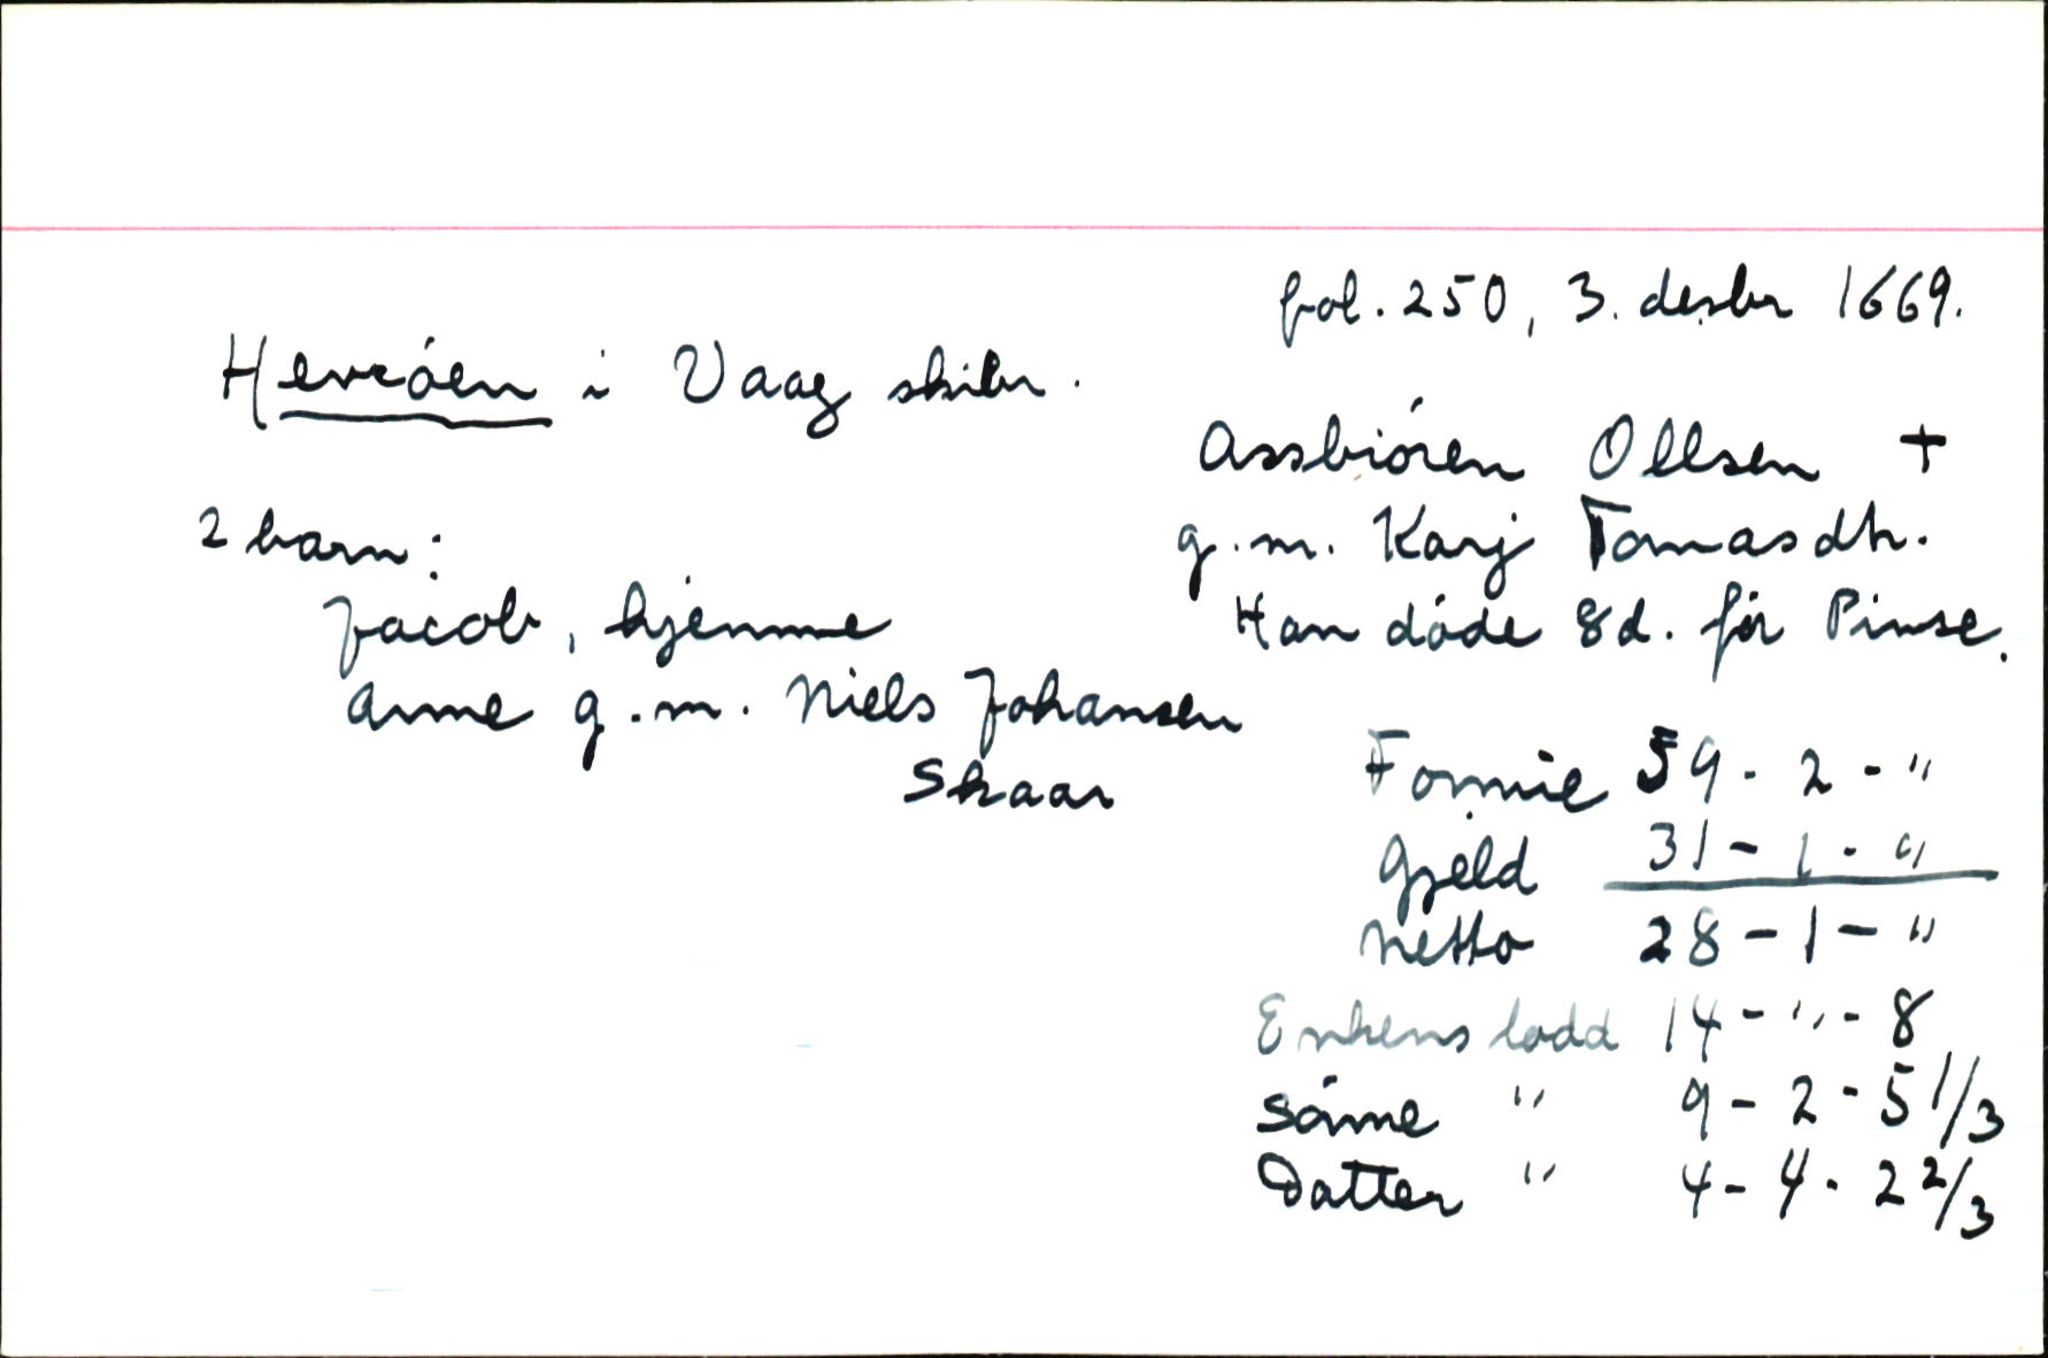 fol. 250, 3. desbr 1669.
Hevröen i Vaag skibr.
Assbiören Ollsen +
g.m. Karj Tomasdtr.
Han döde 8 d. för Pinse.
2 barn:
Jacob, hjemme
Anne g.m. Niels Johansen
Skaar
Formue 59 - 2 - "
Gjeld 31 - 1 - "
Netto 28 - 1 - "
Enkens lodd 14 - " - 8
Sönne " 9 - 2 - 5 1/3
Datter " 4 - 4 - 2 2/3